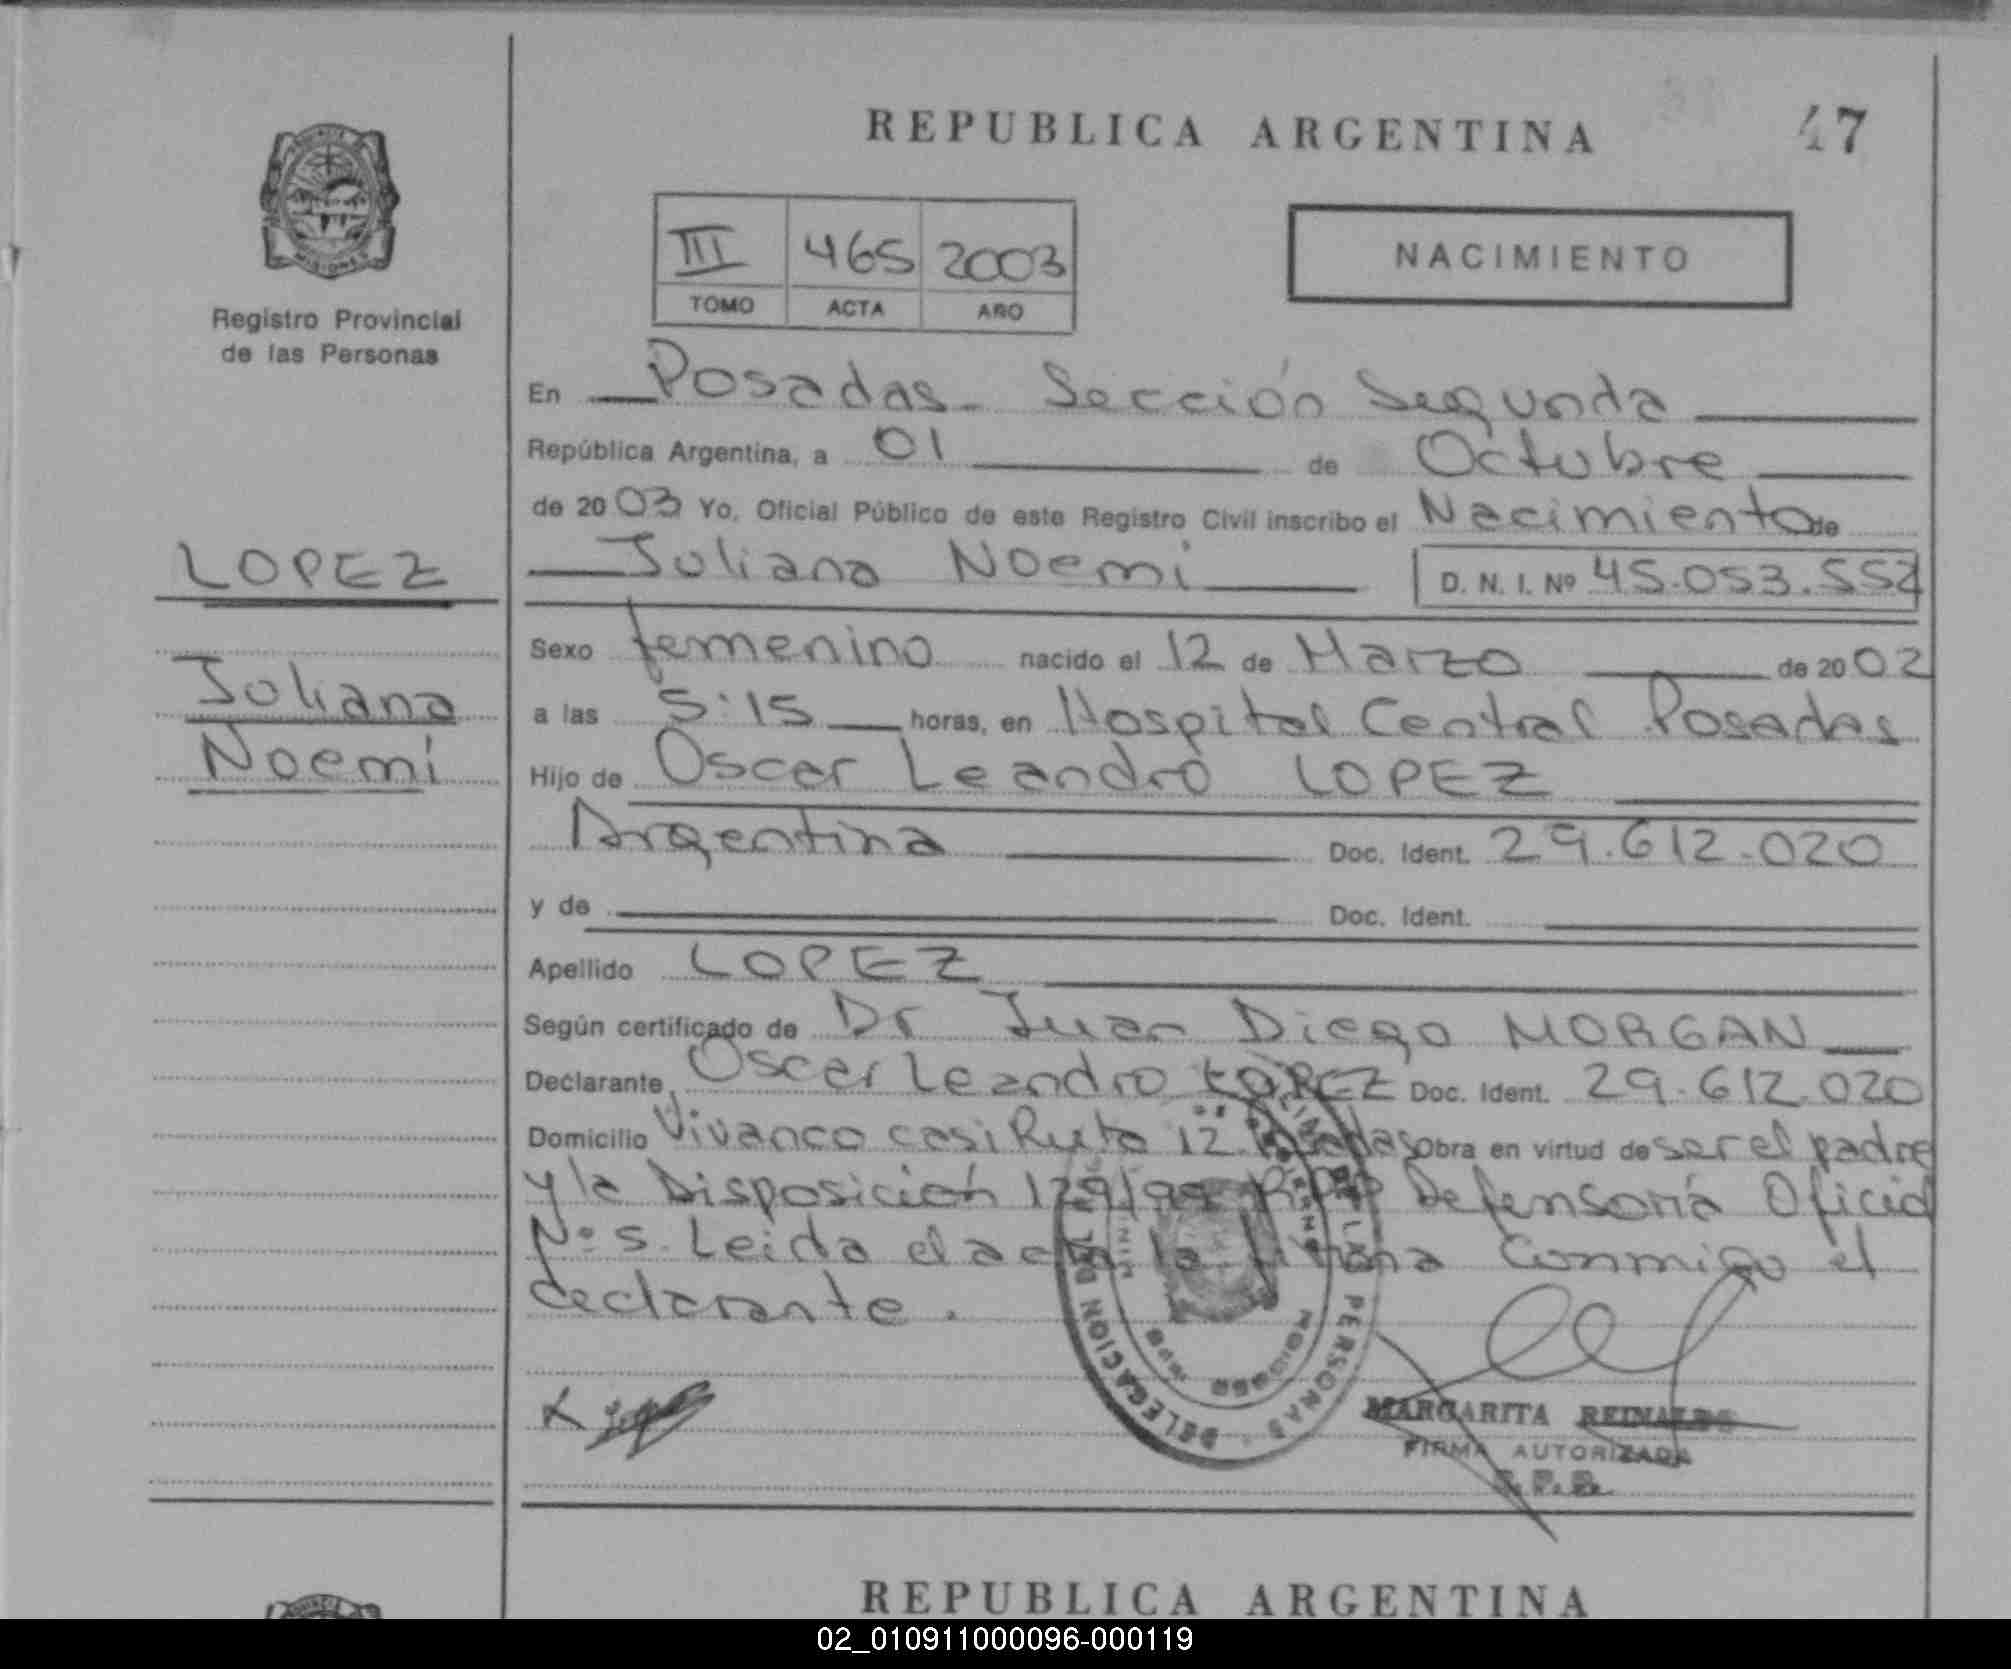 REPUBLICA ARGENTINA
47
PROVINCIA
MISIONES
Registro Provincial
de las Personas
III 465 2003
TOMO ACTA AÑO
NACIMIENTO
En Posadas - Sección Segunda
República Argentina, a 01 de Octubre
de 2003 Yo, Oficial Público de este Registro Civil inscribo el Nacimiento de
Juliana Noemi D. N. I. Nº 45.053.552
LOPEZ
Juliana
Noemi
Sexo femenino nacido el 12 de Marzo de 2002
a las 5:15 horas, en Hospital Central Posadas
Hijo de Oscar Leandro LOPEZ
Argentina Doc. Ident. 29.612.020
y de Doc. Ident.
Apellido LOPEZ
Según certificado de Dr Juan Diego MORGAN
Declarante Oscar Leandro LOPEZ Doc. Ident. 29.612.020
Domicilio Vivanco casi Ruta 12 Posadas Obra en virtud de ser el padre
y la Disposición 129/99 RPP Defensoría Oficial
Nº 5. Leida el acta la firma conmigo el
declarante.
DELEGACION DEL
DE LAS PERSONAS
MARGARITA REINALDS
FIRMA AUTORIZADA
R.P.P.
REPUBLICA ARGENTINA
02_010911000096-000119